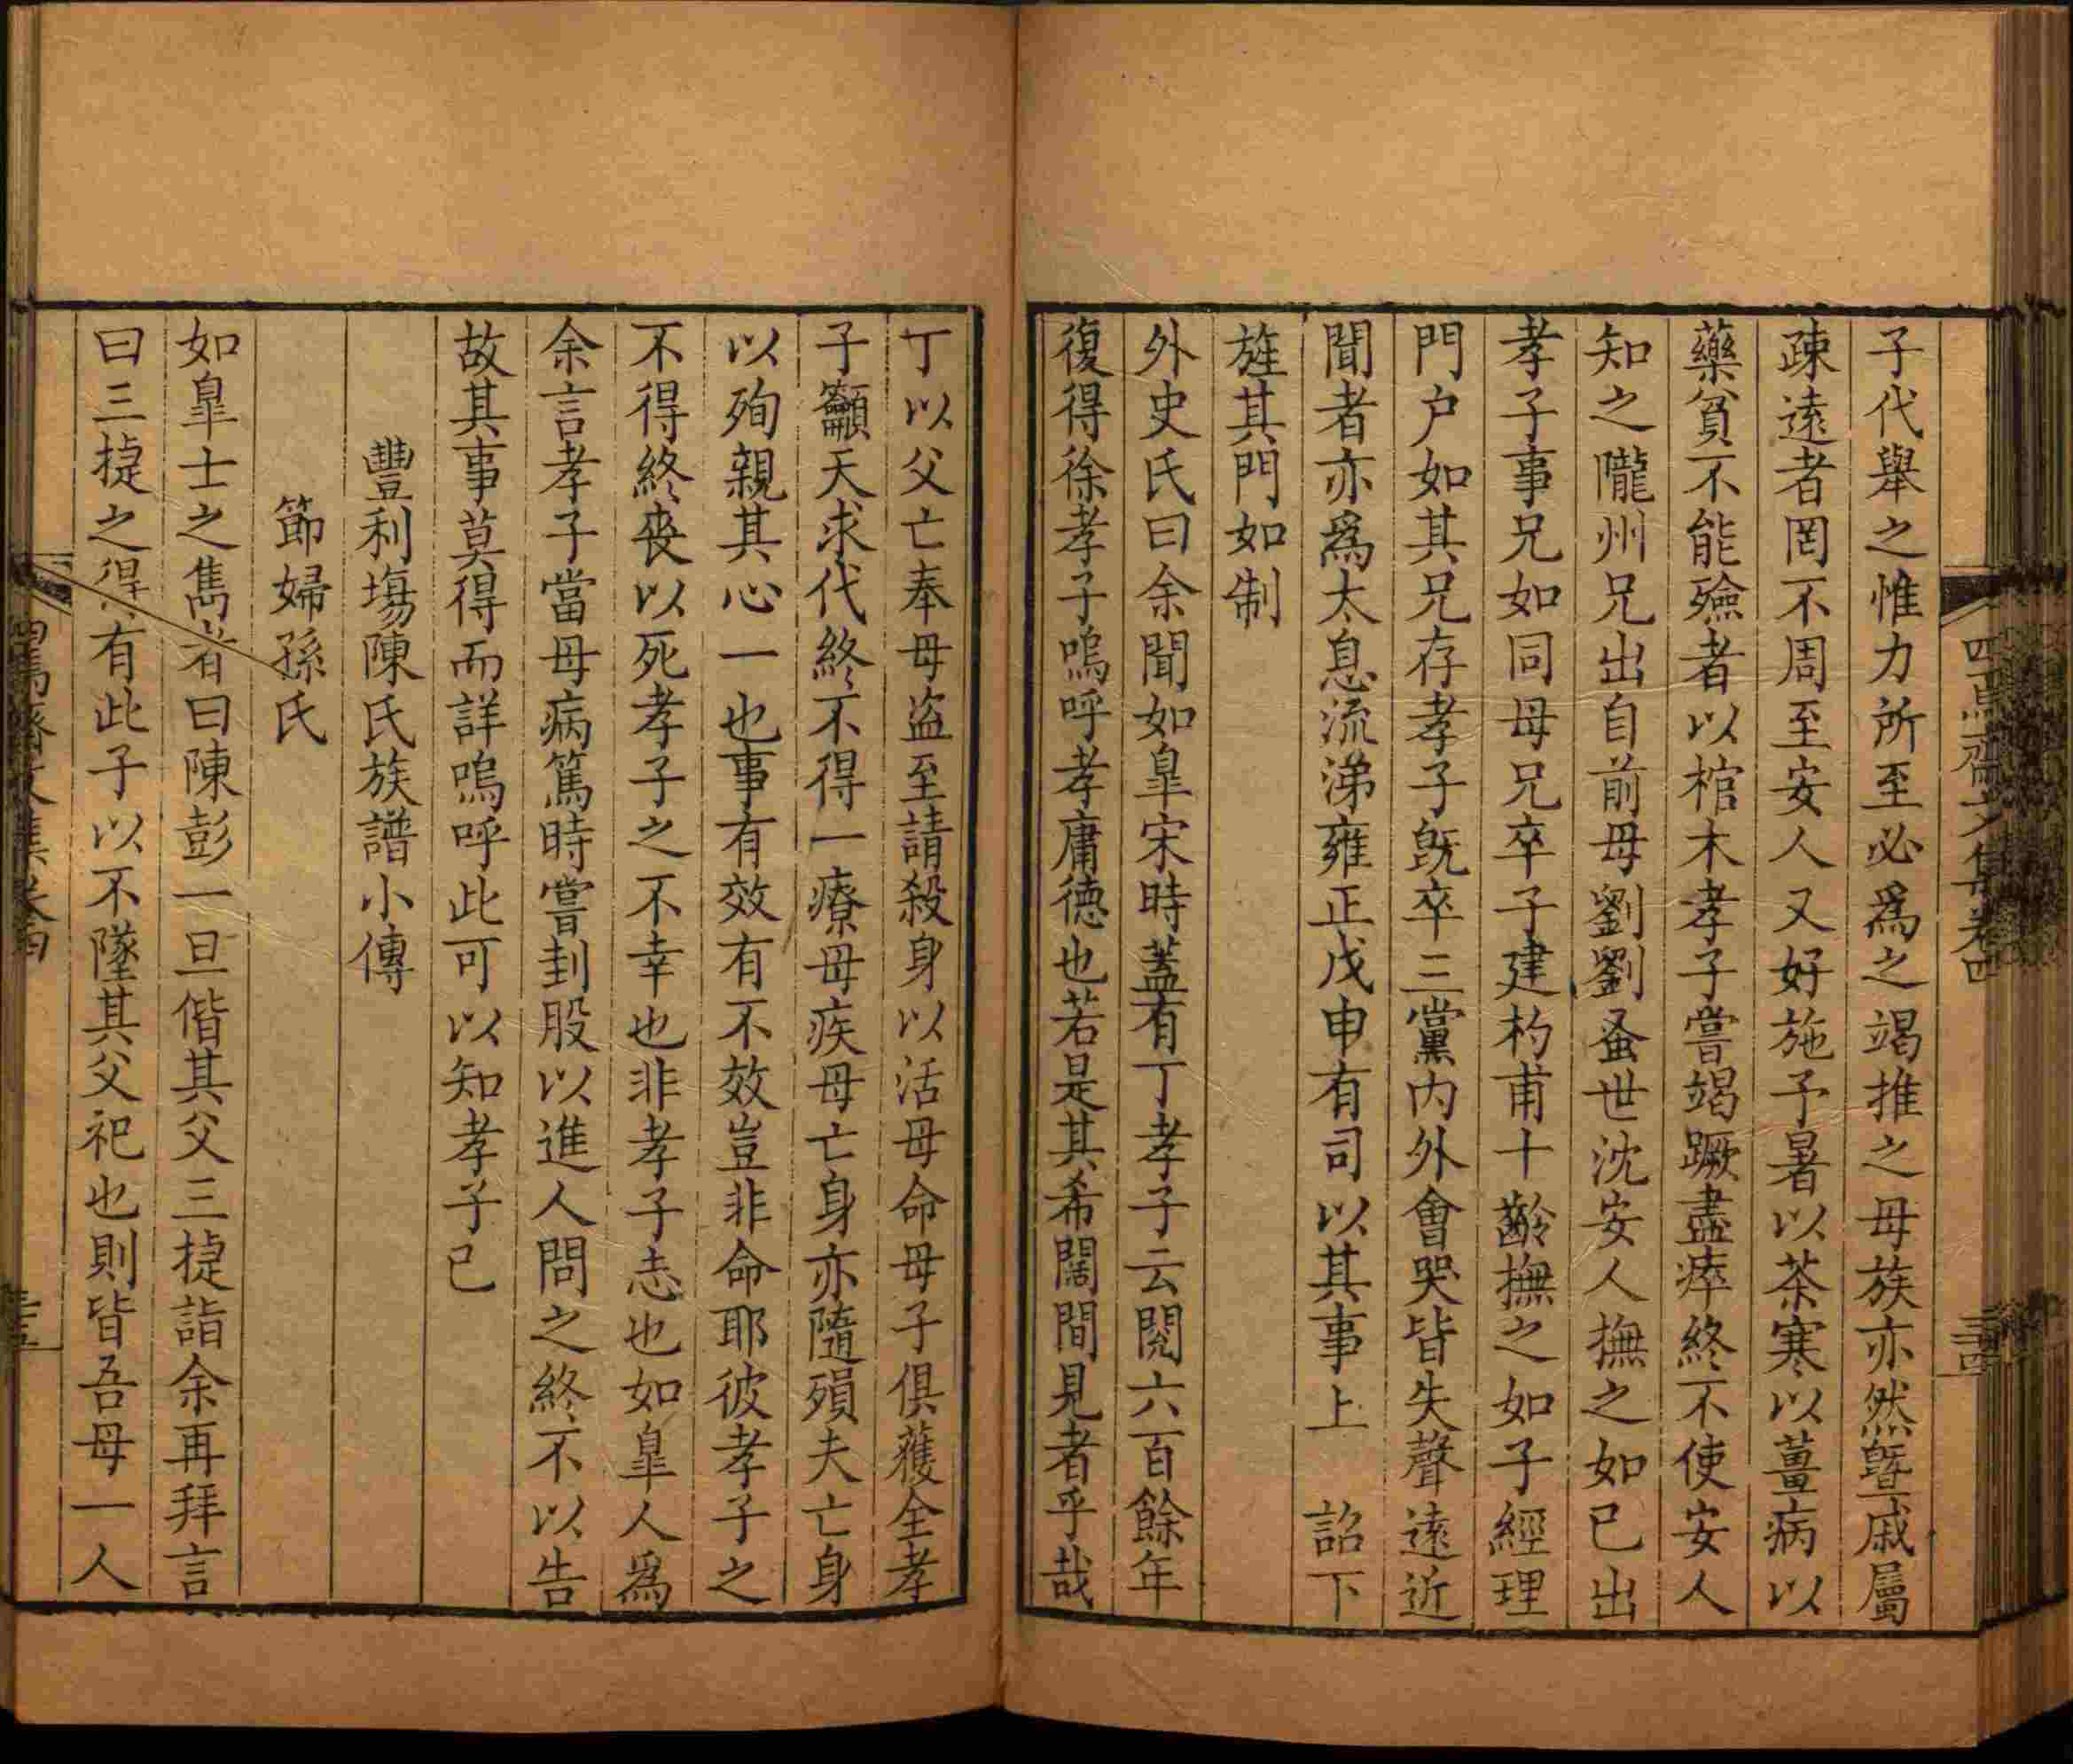 四焉齋文集卷四
三十四
子代舉之惟力所至必爲之竭推之母族亦然曁戚屬
疎遠者罔不周至安人又好施予暑以茶寒以薑病以
藥貧不能殮者以棺木孝子嘗竭蹶盡瘁終不使安人
知之隴州兄出自前母劉劉蚤世沈安人撫之如已出
孝子事兄如同母兄卒子建杓甫十齡撫之如子經理
門户如其兄存孝子旣卒三黨内外會哭皆失聲遠近
聞者亦爲太息流涕雍正戊申有司以其事上 詔下
旌其門如制
外史氏曰余聞如臯宋時蓋有丁孝子云閱六百餘年
復得徐孝子嗚呼孝庸德也若是其希闊間見者乎哉
丁以父亡奉母盗至請殺身以活母命母子俱獲全孝
子籲天求代終不得一療母疾母亡身亦隨殞夫亡身
以殉親其心一也事有效有不效豈非命耶彼孝子之
不得終喪以死孝子之不幸也非孝子志也如臯人爲
余言孝子當母病篤時嘗刲股以進人問之終不以告
故其事莫得而詳嗚呼此可以知孝子已
豐利塲陳氏族譜小傳
節婦孫氏
如臯士之雋者曰陳彭一旦偕其父三㨗詣余再拜言
曰三㨗之得有此子以不墜其父祀也則皆吾母一人
四焉齋文集卷四
三十五